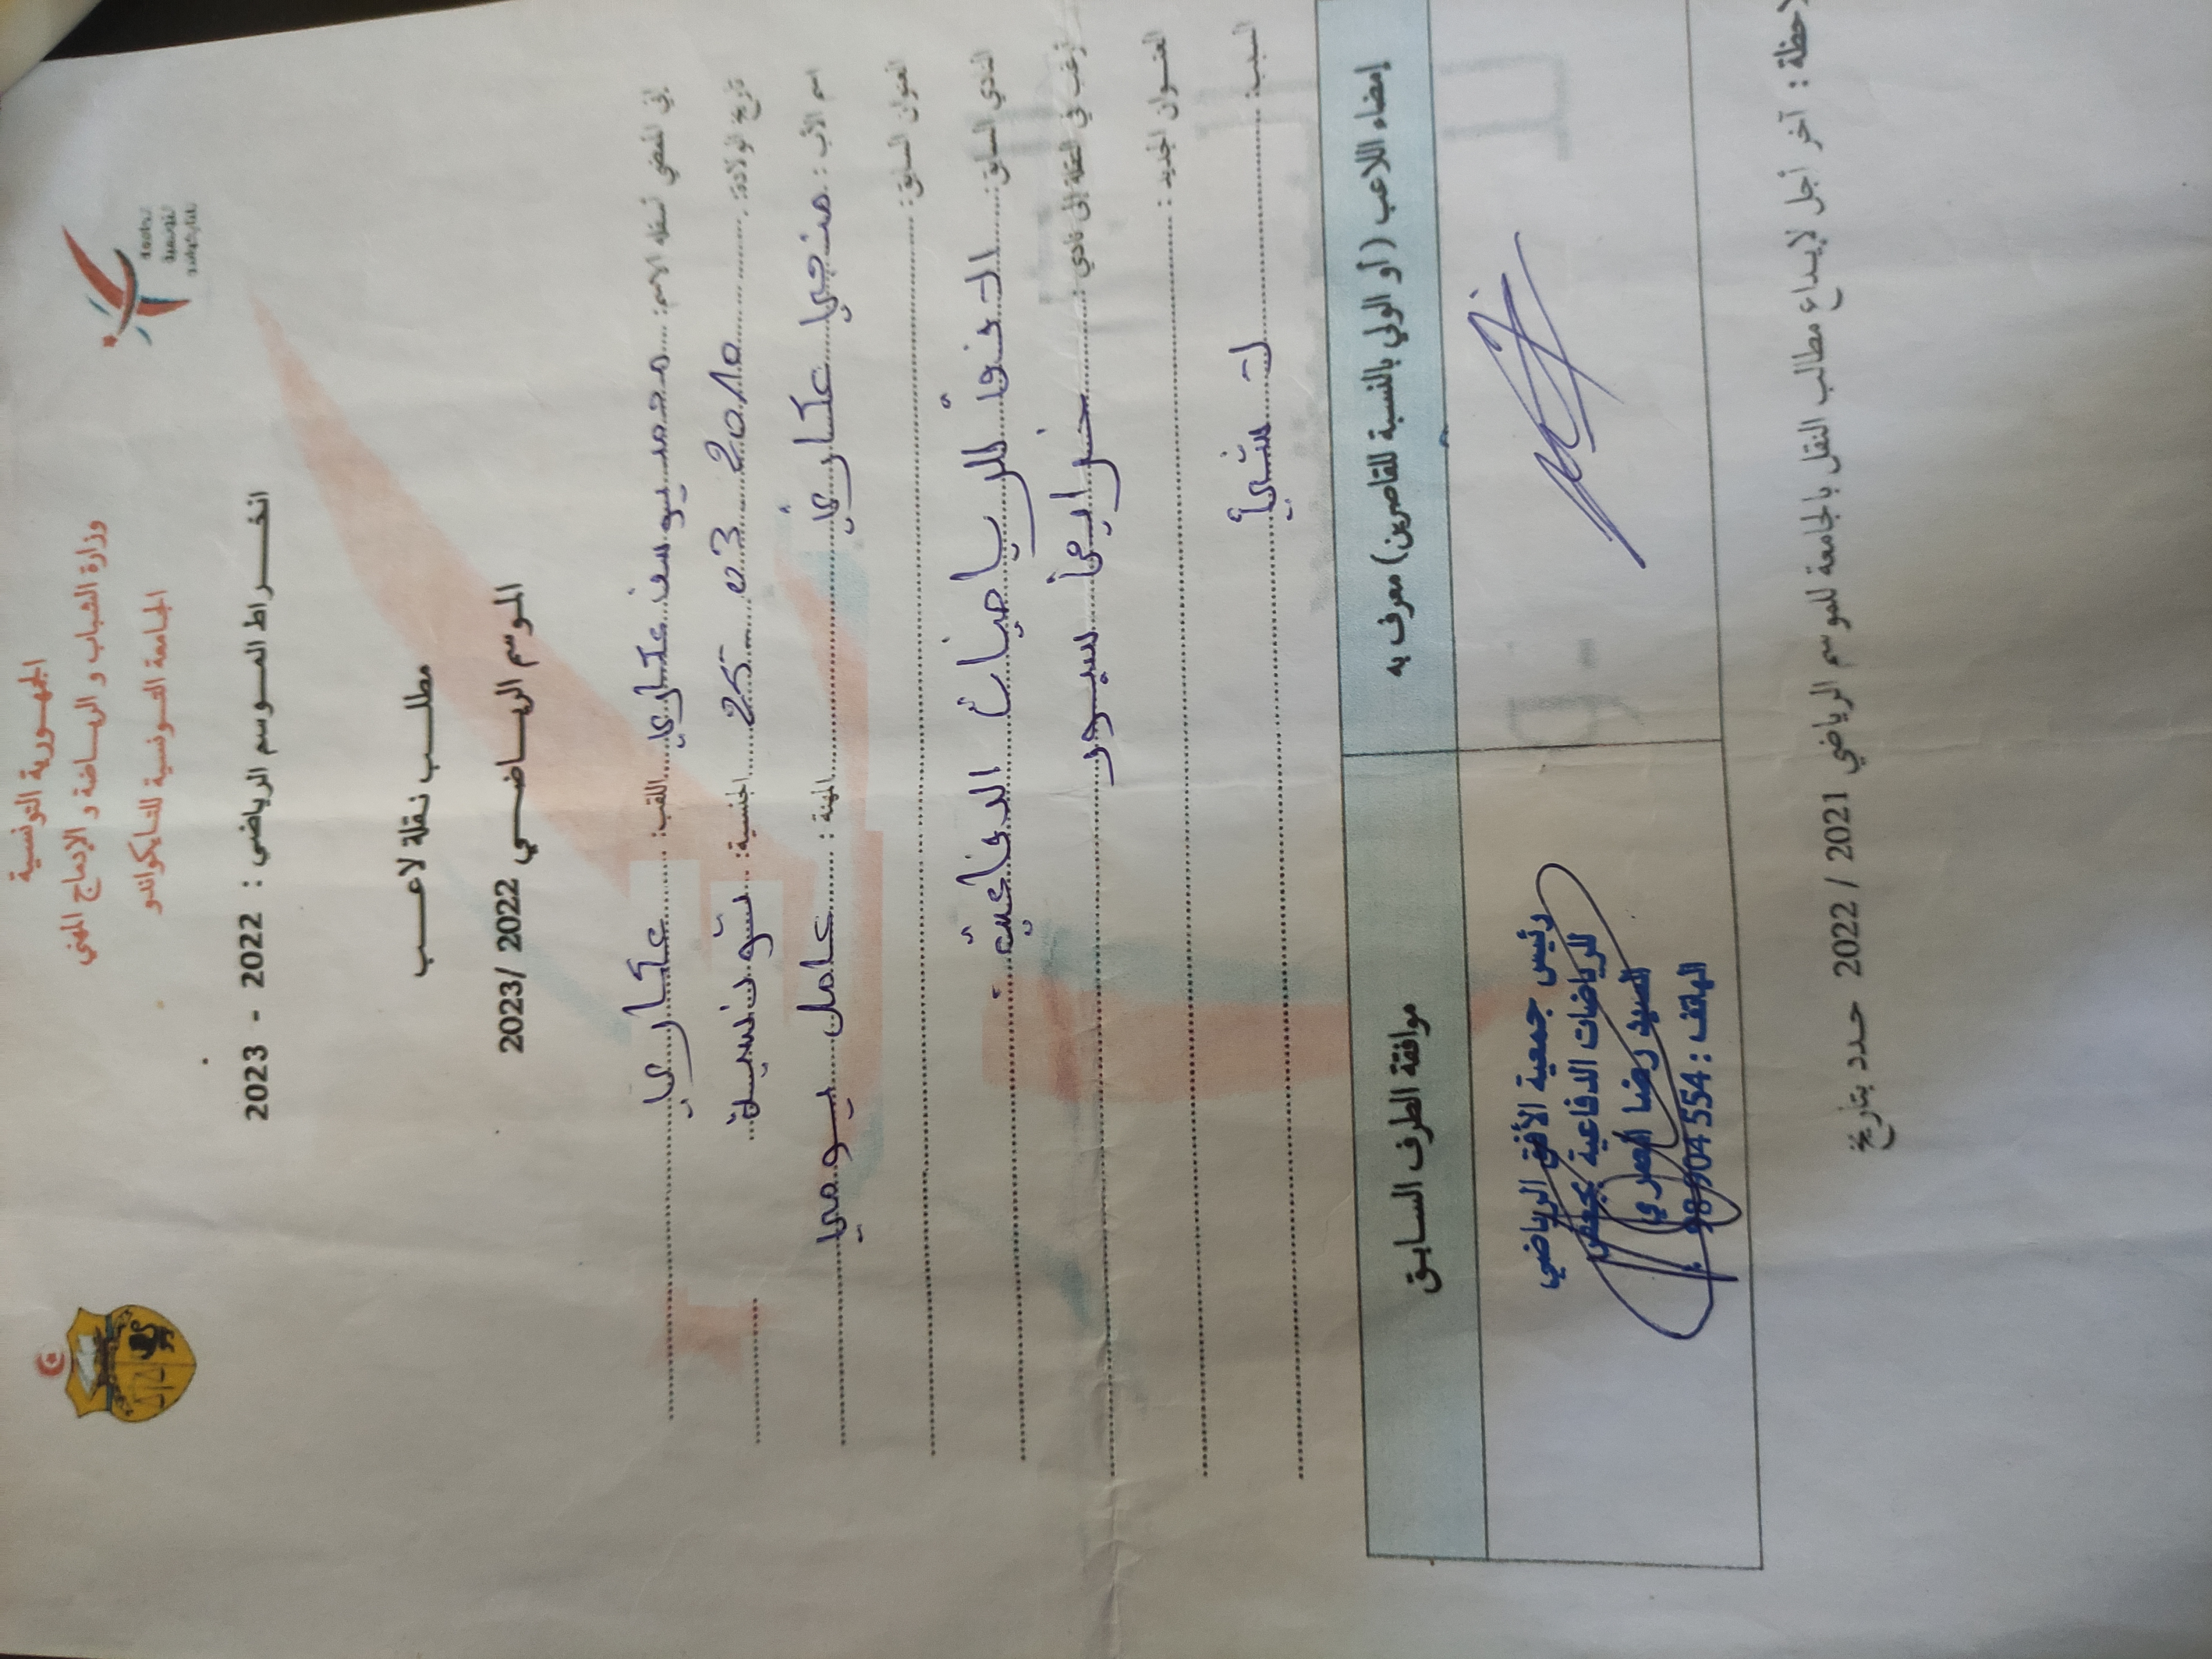 الجمهورية التونسية
وزارة الشباب و الرياضة و الإدماج المهني
الجامعة التونسية للتايكواندو
الجامعة
التونسية
للتايكواندو
انخراط الموسم الرياضي : 2022 - 2023
مطلب نقلة لاعب
الموسم الرياضي 2022 /2023
إني الممضي أسفله الاسم: محمد يوسف عكاري اللقب: عكاري
تاريخ الولادة: 25 03 2010 الجنسية: تونسية
اسم الأب : منجي عكاري المهنة : عامل يومي
العنوان السابق:
النادي السابق: الأفق للرياضات الدفاعية
أرغب في النقلة إلى نادي : سبور
العنوان الجديد :
السبب: لا شيئ
إمضاء اللاعب ( أو الولي بالنسبة للقاصرين) معرف به
موافقة الطرف السابق
رئيس جمعية الأفق الرياضي
للرياضات الدفاعية
السيد رضا
الهاتف : 98 904 554
احظة : آخر أجل لإيداع مطالب النقل بالجامعة للموسم الرياضي 2021 / 2022 حدد بتاريخ